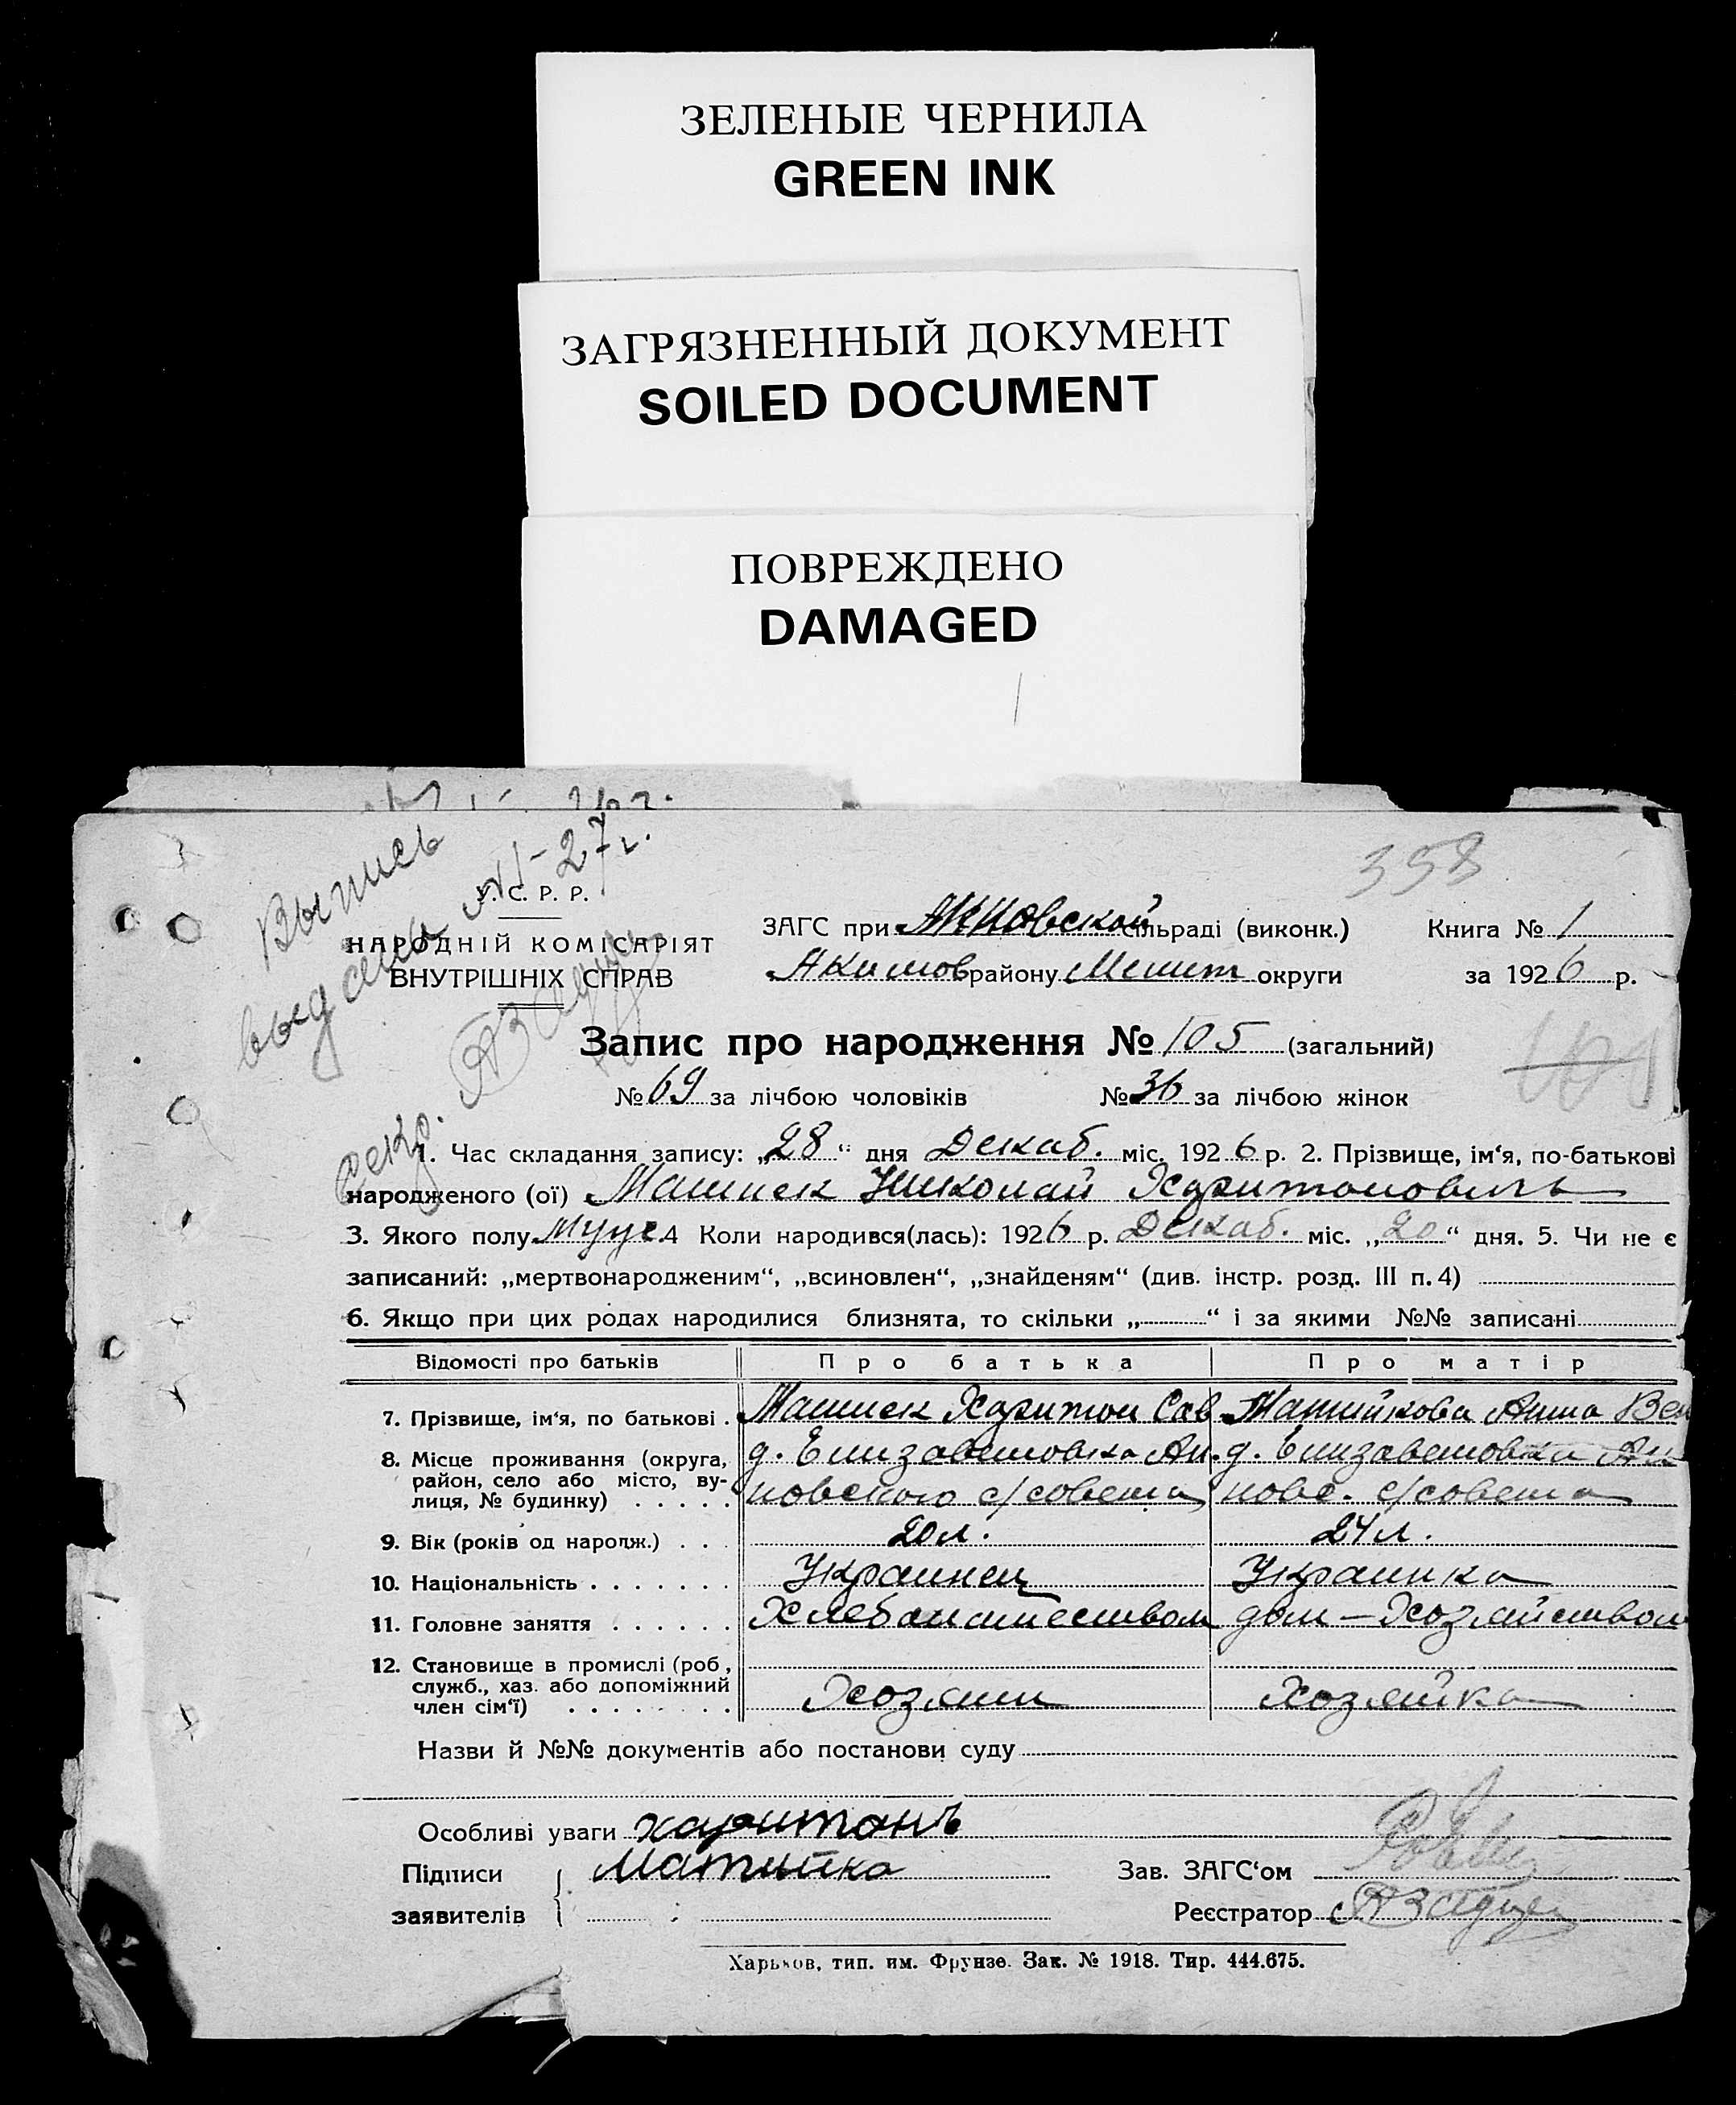 ЗЕЛЕНЫЕ ЧЕРНИЛА
GREEN INK
ЗАГРЯЗНЕННЫЙ ДОКУМЕНТ
SOILED DOCUMENT
ПОВРЕЖДЕНО
DAMAGED
Выпись
выдана
27г.
358
У. С. Р. Р.
НАРОДНІЙ КОМІСАРІЯТ
ВНУТРІШНІХ СПРАВ
ЗАГС при сільраді (виконк.) Книга № 1
Акимов району Мелит округи за 1926 р.
Запис про народження № 105 (загальний)
№ 69 за лічбою чоловіків № 36 за лічбою жінок
1. Час складання запису: „28“ дня Декаб. міс. 1926 р. 2. Прізвище, ім‘я, по-батькові
народженого (ої) Николай Харитонович
3. Якого полу Муж. 4 Коли народився(лась): 1926 р. Декаб. міс. „20“ дня. 5. Чи не є
записаний: „мертвонародженим“, „всиновлен“, „знайденям“ (див. інстр. розд. III п. 4)
6. Якщо при цих родах народилися близнята, то скільки „ “ і за якими №№ записані
Відомості про батьків Про батька Про матір
7. Прізвище, ім‘я, по батькові . Харитон Сав. Анна
8. Місце проживання (округа, д. Елизаветовка Ан. д. Елизаветовка Ан
район, село або місто, ву-
лиця, № будинку) . . . . . новского с/совета новс. с/совета
9. Вік (років од народж.) . . . 20 л. 24 л.
10. Національність . . . . . . . Украинец Украинка
11. Головне заняття . . . . . . Хлебопашеством дом-Хозяйством
12. Становище в промислі (роб.,
служб., хаз. або допоміжний
член сім‘ї) . . . . . . . . Хозяин Хозяйка
Назви й №№ документів або постанови суду
Особливі уваги Харитонъ
Підписи Матийко Зав. ЗАГС‘ом
заявителів Реєстратор
Харьков, тип. им. Фрунзе. Зак. № 1918. Тир. 444.675.